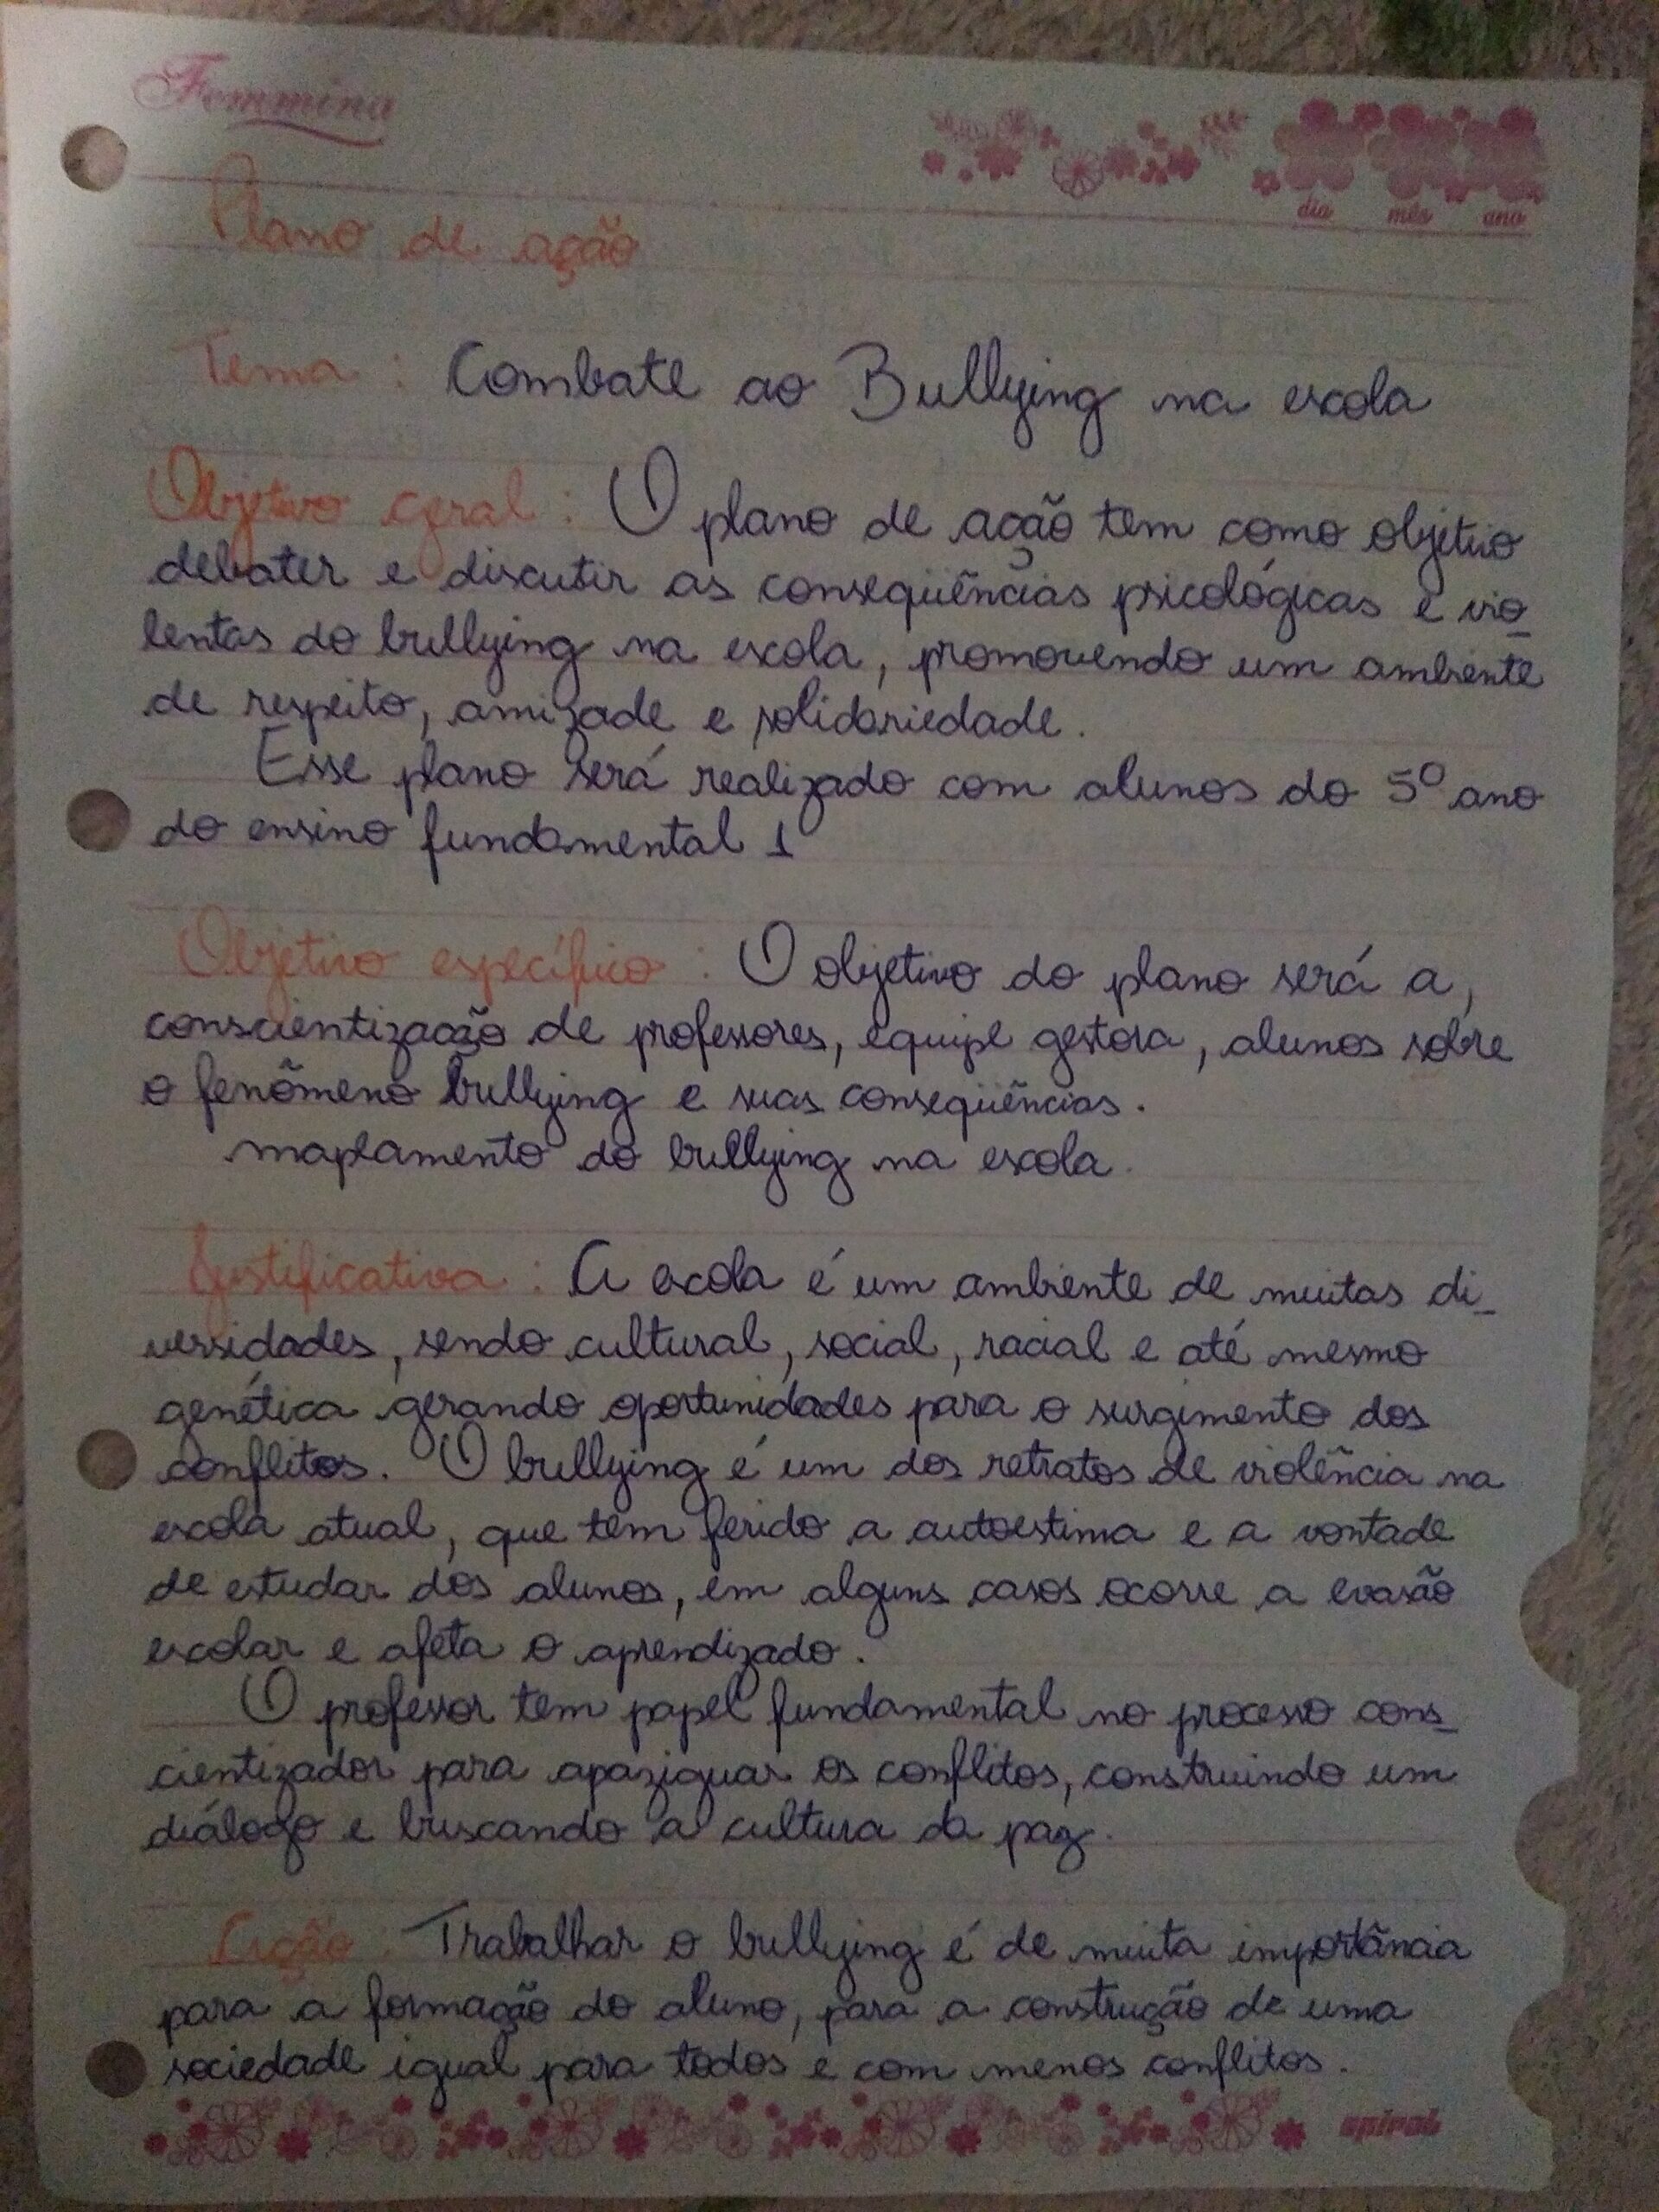 Femmina
dia mês ano
Plano de ação
Tema : Combate ao Bullying na escola
Objetivo geral : O plano de ação tem como objetivo
debater e discutir as conseqüências psicológicas e vio_
lentas do bullying na escola, promovendo um ambiente
de respeito, amizade e solidariedade.
Esse plano será realizado com alunos do 5º ano
do ensino fundamental 1
Objetivo específico : O objetivo do plano será a,
conscientização de professores, equipe gestora, alunos sobre
o fenômeno bullying e suas conseqüências.
mapeamento do bullying na escola.
Justificativa : A escola é um ambiente de muitas di_
versidades, sendo cultural, social, racial e até mesmo
genética gerando oportunidades para o surgimento dos
conflitos. O bullying é um dos retratos de violência na
escola atual, que tem ferido a autoestima e a vontade
de estudar dos alunos, em alguns casos ocorre a evasão
escolar e afeta o aprendizado.
O professor tem papel fundamental no processo cons_
cientizador para apaziguar os conflitos, construindo um
diálogo e buscando a cultura da paz.
Lição : Trabalhar o bullying é de muita importância
para a formação do aluno, para a construção de uma
sociedade igual para todos e com menos conflitos.
spiral